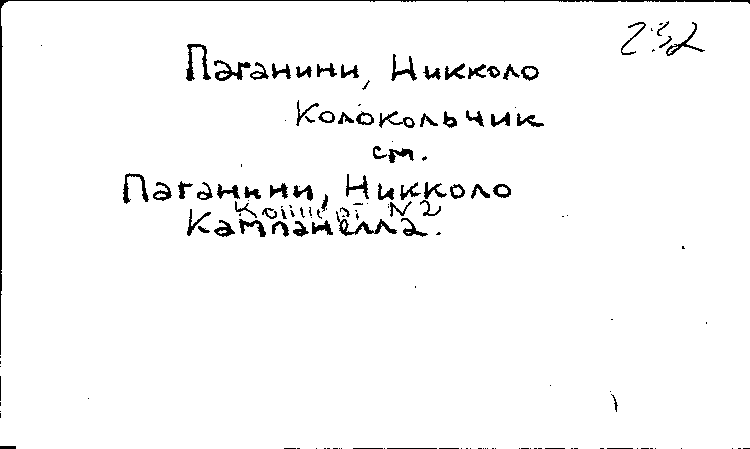 232
Паганини, Никколо
Колокольчик
см.
Паганини, Никколо
Концерт N2
Кампанелла.